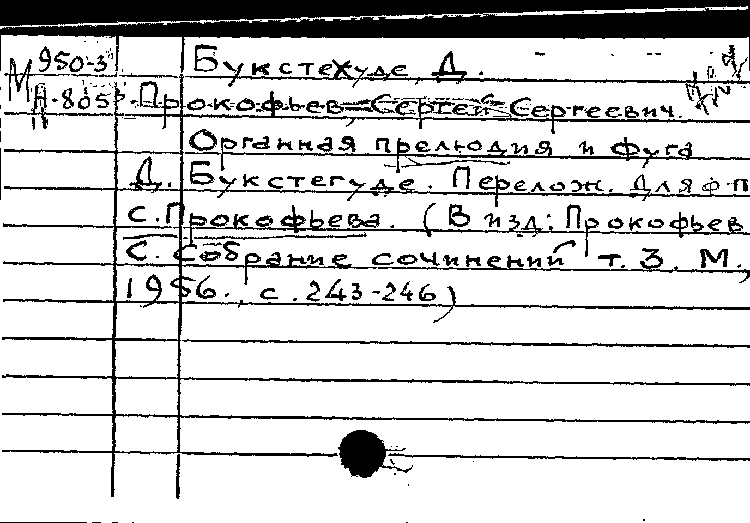 М 950-3 Букстехуде, Д.
А-805 Прокофьев, Сергей Сергеевич.
Органная прелюдия и фуга
Д. Букстегуде. Перелож. для ф-п
С. Прокофьева. (В изд: Прокофьев
С. Собрание сочинений т. 3. М.,
1956., с. 243-246)